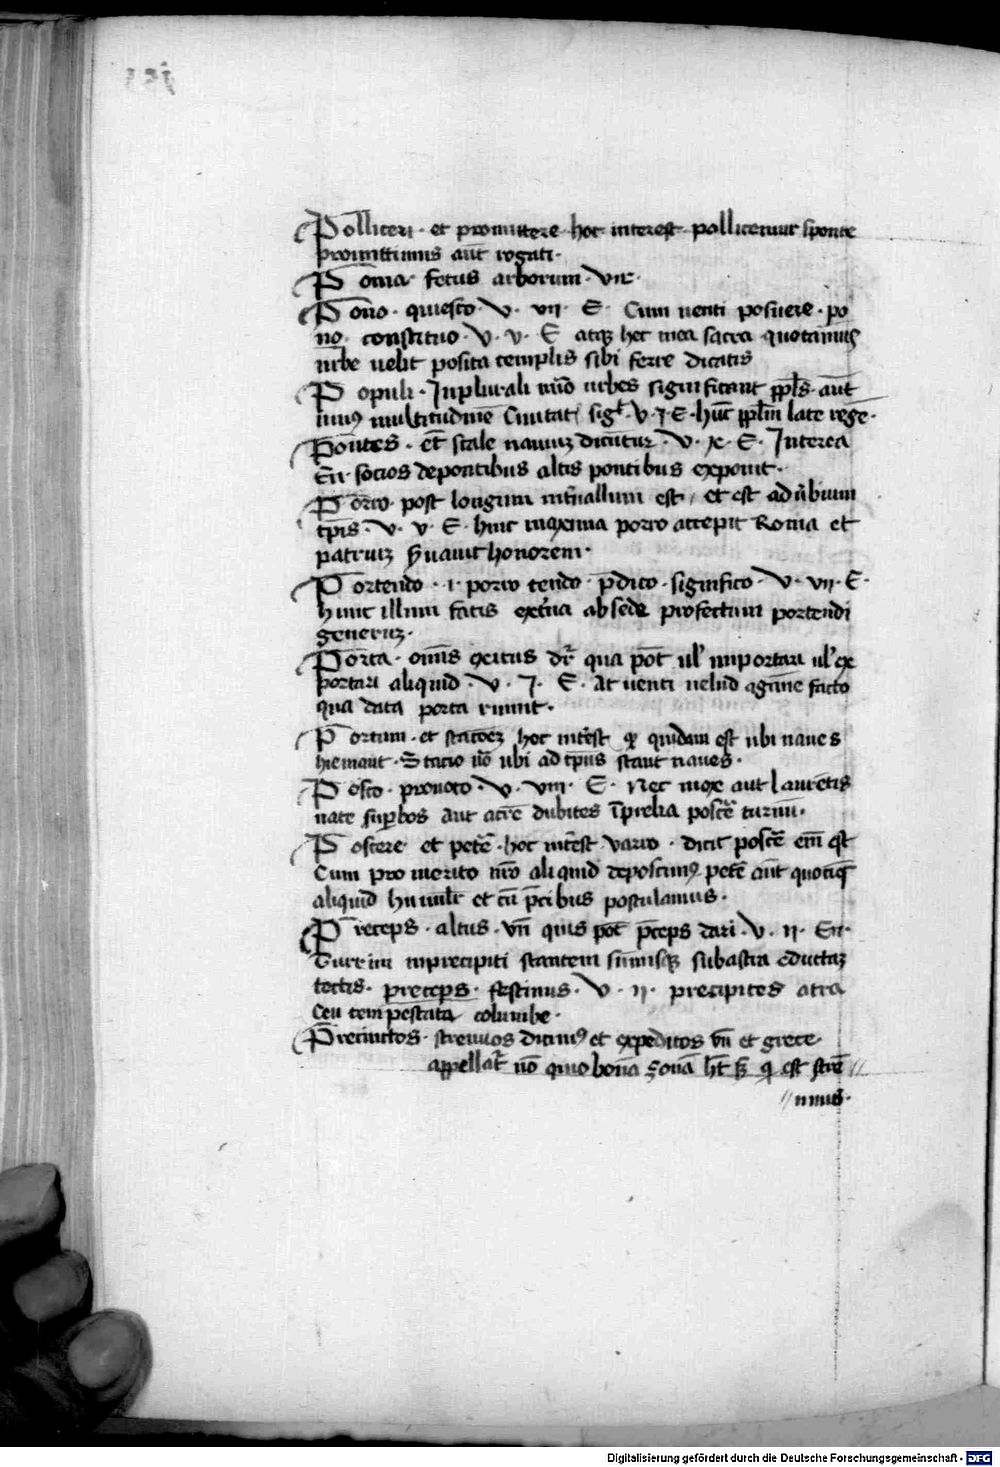 Polliceri · et promittere hoc interest pollicemur sponte
promittimus aūt rogati ·
Poma fetus arborum · vnr ·
Pono · quiesco · V · vii · E · Cum uenti posuere · po
no · constituo · V · v · E atqꝫ hec mea sacra quotannis
urbe uelit posita templis sibi ferre dicatis
Populi · In plurali nūo urbes significant ppl̄s · aūt
unius multitudinē Ciuitat sigt̄ · V · I · E · hūc ppl̄m late regē ·
Pontes · et̄ scale nauiuꝫ dicūtur · V · x · E · Interea
En · socios de pontibus altis pontibus exponit ·
Porro · post longum int̄uallum est , et est aduʼbium
tp̄is · V · v · E · hinc maxima porro accepit Roma et
patriuꝫ s̄uauit honorem ·
Portendo · i · porro tendo · p̄dico · significo · V · vii · E ·
hunc illum fatis ext̄na ab sede profectum portendi
generuꝫ ·
Porta · omīs exitus dr̄ qua pōt ul̄ importari ul̄ ex
portari aliquid · V · I · E · at uenti uelud agmīne facto
qua data porta ruunt ·
Portum · et statōeꝫ hoc int̄est qꝫ quidam est ubi naues
hiemant · Statio uō ubi ad tp̄us stant naues ·
Posco · prouoco · V · viii · E · Nec mox aut laurētis
nate sup̄bos aut acrē dubites ī prelia poscē turnū ·
Poscere et petē · hoc int̄est varro · dicit poscē em̄ est
Cum pro merito nr̄o aliquid deposcimꝰ petē aūt quociēs
aliquid humilr̄ et cū p̄cibus postulamus ·
Preceps · altus · vn̄ quis pōt p̄ceps dari · V · ii · En ·
Turrim in precipiti stantem sūmisqꝫ sub astra eductaꝫ
tectis · preceps · festinus · V · ii · precipites atra
Ceu tempestate columbe ·
Precinctos · strenuos dicimꝰ et expeditos vn̄ et grece
appellat̄ uō quio bonā zonā ht̄ sꝫ qi est strē
nuus ·
Digitalisierung gefördert durch die Deutsche Forschungsgemeinschaft - DFG